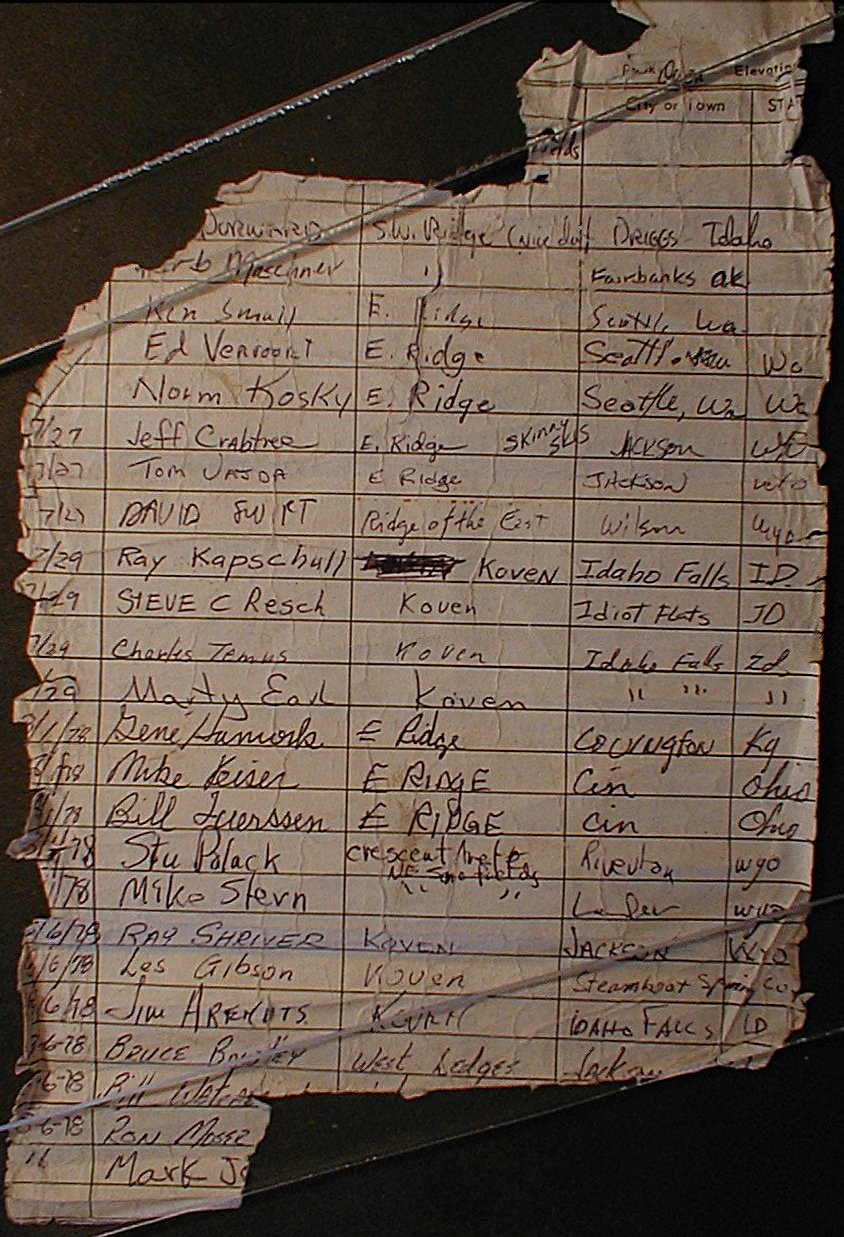 Peak Owen Elevation
City or Town STA
DURWARD S.W. Ridge DRIGGS Idaho
Herb Maschner " Fairbanks ak
Ken Small E. Ridge Seattle, Wa.
Ed E. Ridge Seattle Wa
Norm Kosky E. Ridge Seattle, Wa Wa
7/27 Jeff Crabtree E. Ridge SKINNY SKIS JACKSON WYO
7/27 Tom VAJDA E Ridge JACKSON WYO
7/27 DAVID SWIFT Ridge of the East Wilson Wyo
7/29 Ray Kapschull Koven Idaho Falls ID.
7/29 STEVE C Resch Koven Idiot Flats ID
7/29 Charles Koven Idaho Falls Id.
7/29 Marty Earl Koven " " "
8/1/78 Gene E Ridge COVINGTON Ky
Mike Keiser E RIDGE Cin Ohio
/78 Bill Juerssen E RIDGE cin Ohio
/78 Stu Polack crescent Riverton wyo
NE Snofields
/78 Mike Stern " " Lander wyo
8/6/78 RAY SHRIVER KOVEN JACKSON WYO
8/6/78 Les Gibson Koven Steamboat Spring Co
8/6/78 Jim IDAHO FALLS ID
8-6-78 BRUCE West Ledges Jackson
8-6-78 Bill
8-6-78 RON
" Mark